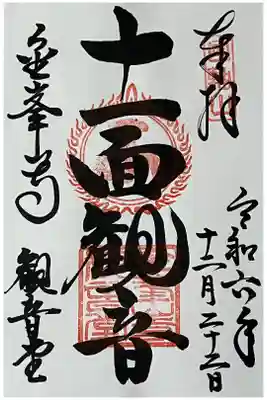 奉拝
令和六年
十二月二十二日
十一面観音
金峯寺
観音堂